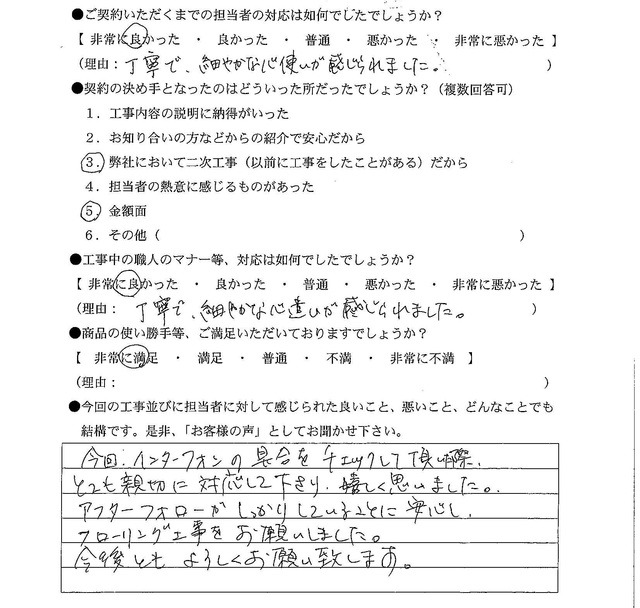 ●ご契約いただくまでの担当者の対応は如何でしたでしょうか？
【 非常に良かった ・ 良かった ・ 普通 ・ 悪かった ・ 非常に悪かった 】
(理由： 丁寧で、細やかな心使いが感じられました。 )
●契約の決め手となったのはどういった所だったでしょうか？（複数回答可）
１．工事内容の説明に納得がいった
２．お知り合いの方などからの紹介で安心だから
３．弊社において二次工事（以前に工事をしたことがある）だから
４．担当者の熱意に感じるものがあった
５．金額面
６．その他（ ）
●工事中の職人のマナー等、対応は如何でしたでしょうか？
【 非常に良かった ・ 良かった ・ 普通 ・ 悪かった ・ 非常に悪かった 】
(理由： 丁寧で、細やかな心遣いが感じられました。 )
●商品の使い勝手等、ご満足いただいておりますでしょうか？
【 非常に満足 ・ 満足 ・ 普通 ・ 不満 ・ 非常に不満 】
(理由： )
●今回の工事並びに担当者に対して感じられた良いこと、悪いこと、どんなことでも
結構です。是非、「お客様の声」としてお聞かせ下さい。
今回、インターフォンの具合をチェックして頂いた際、
とても親切に対応して下さり、嬉しく思いました。
アフターフォローがしっかりしていることに安心し、
フローリング工事をお願いしました。
今後とも よろしくお願い致します。